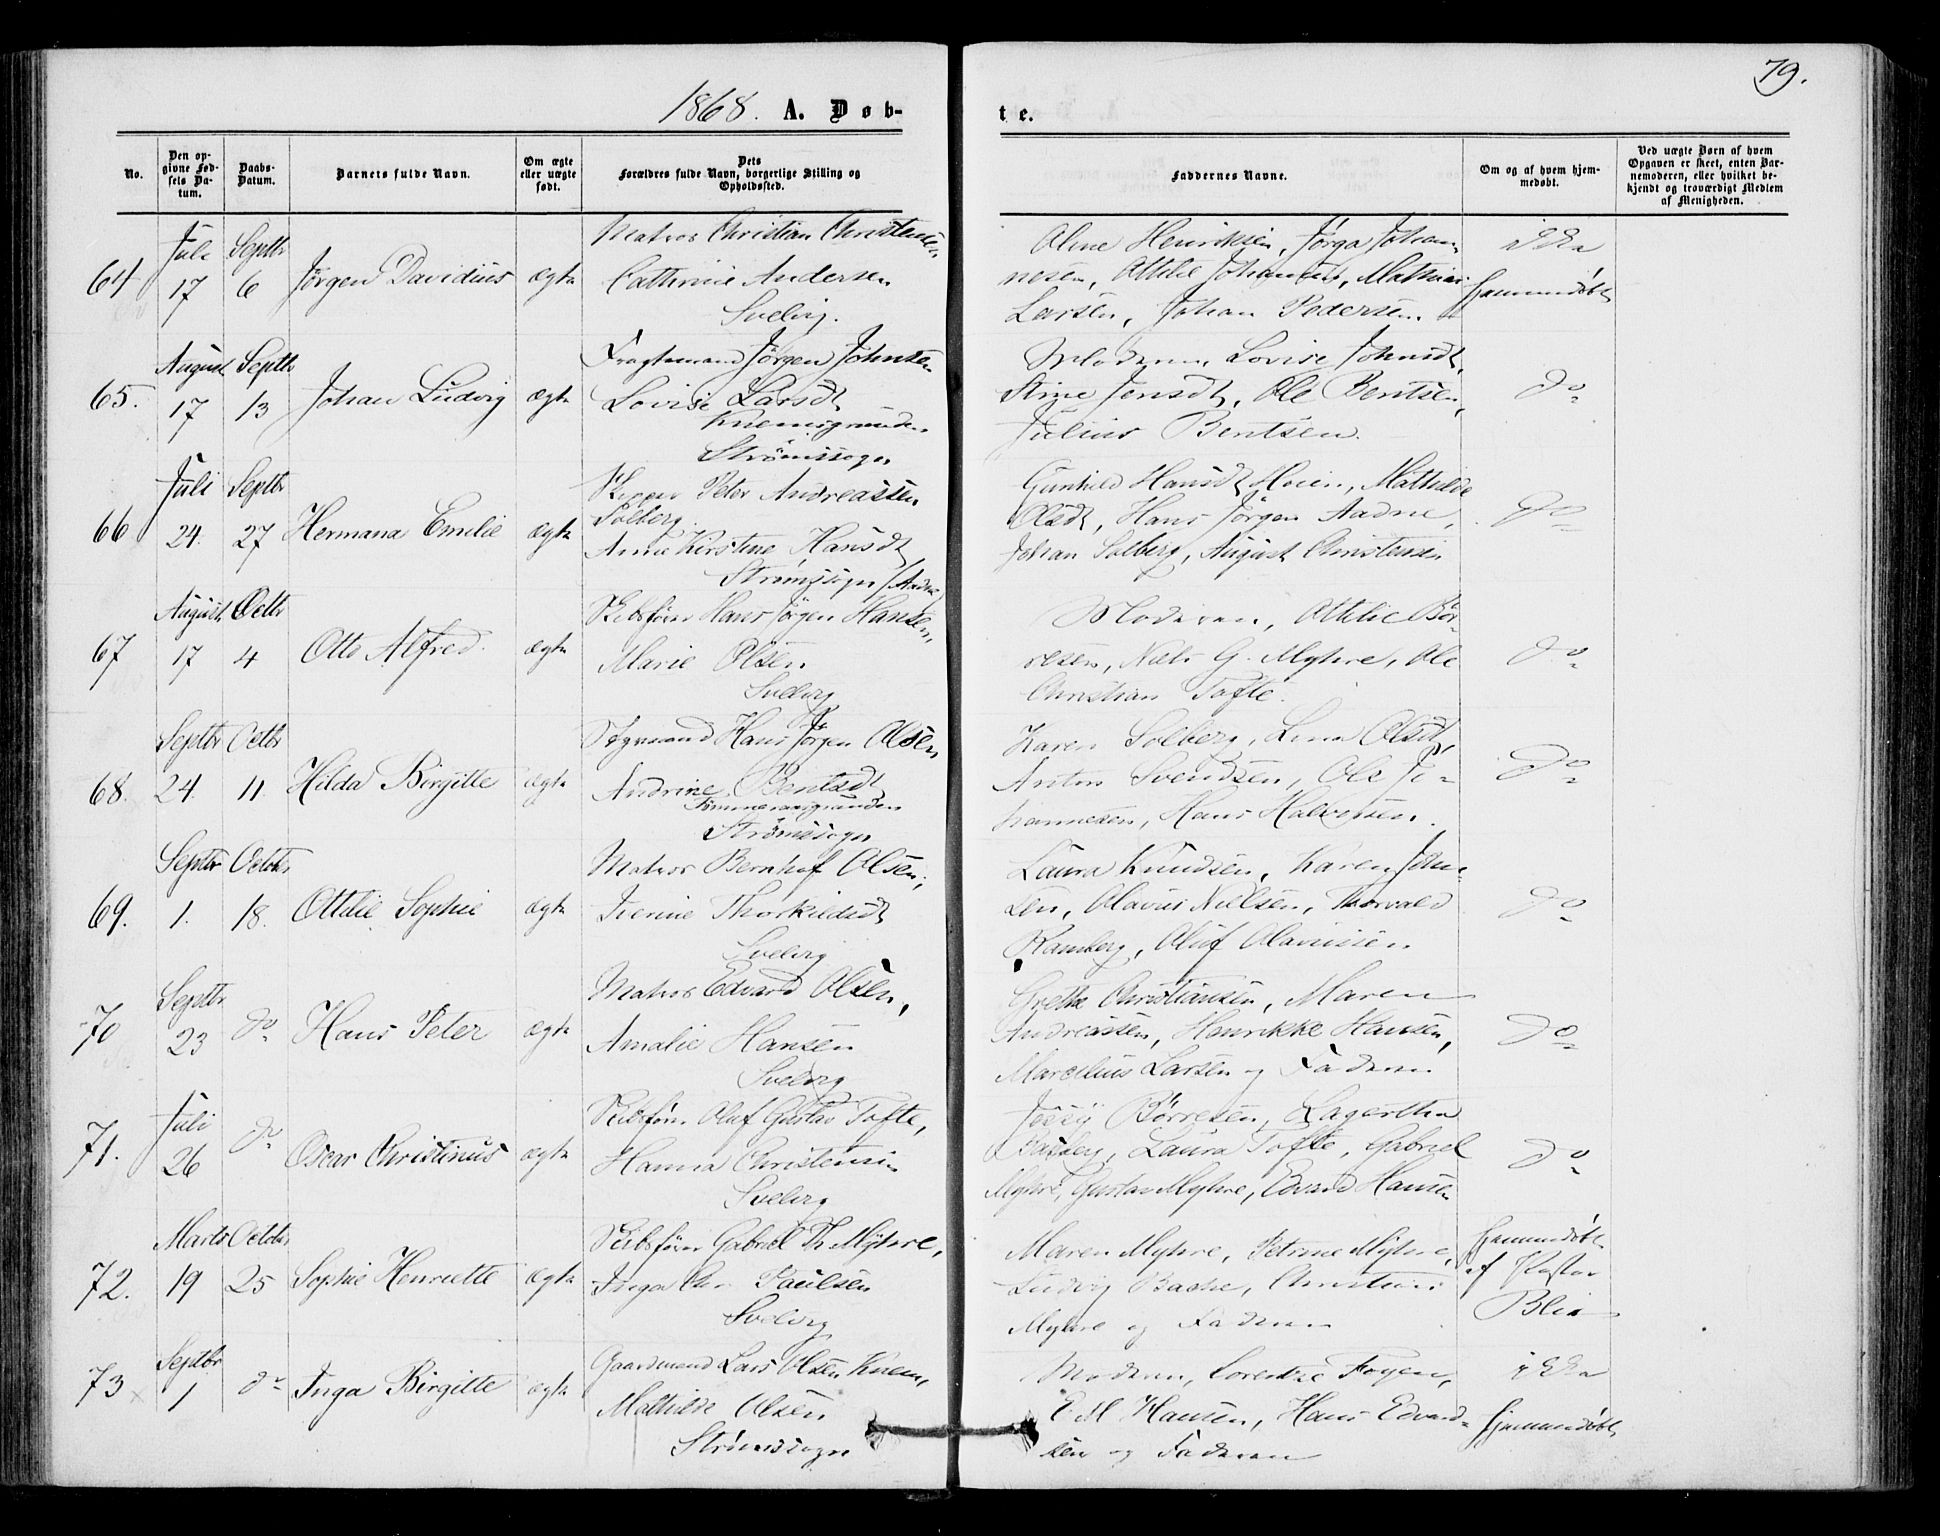 79.
1868. A. Døb-
te.
No.
Den op-
givne Fød-
sels Da-
tum.
Daabs-
Datum.
Barnets fulde Navn.
Om ægte
eller uægte
født.
Dets
Forældres fulde Navn, borgerlige Stilling og
Opholdssted.
Faddernes Navne.
Om og af hvem hjem-
medøbt.
Ved uægte Børn af hvem
Opgaven er skeet, enten Bar-
nemoderen, eller hvilket be-
kjendt og troværdigt Medlem
af Menigheden.
64
Juli
17
Septbr
6
Jørgen Davidius
ægte
Matros Christian Christensen
Cathrine Andersen
Svelvig.
Oline Henriksen, Jørga Johan-
nesen, Ottilie Johansen, Mathias
Larsen, Johan Pedersen.
ikke
hjemmedøbt
65.
August
17
Septbr
13
Johan Ludvig
ægte
Fragtemand Jørgen Johnsen
Lovise Larsdt
Knemsgrunden
Strømssogn
Moderen, Lovise Johnsdt,
Stine Jensdt, Ole Bentsen,
Julius Bentsen.
do
66
Juli
24.
Septbr
27
Hermana Emilie
ægte
Skipper Peter Andreassen
Solberg.
Anne Kirstine Hansdt
Strømssogn
Gunhild Hansdt Moien, Mathilde
Olsdt, Hans Jørgen Aadne,
Johan Solberg, August Christensen
do
67
August
17
Octbr
4
Otto Alfred.
ægte
Skibsfører Hans Jørgen Hansen,
Marie Olsen
Svelvig
Moderen, Ottilie Bør-
resen, Niels G. Myhre, Ole
Christian Tofte.
do
68.
Septbr
24.
Octbr
11.
Hilda Birgitte
ægte
Søgmand Hans Jørgen Olsen
Andrine Bentsdt
Strømssogn
Karen Solberg, Lina Olsdt,
Anton Svendsen, Ole Jo-
hannesen, Hans Halvorsen.
do
69.
Septbr
1.
October
18.
Ottilie Sophie
ægte
Matros Bernhof Olsen,
Irenie Thorkildsdt
Svelvig
Laura Knudsen, Karen John-
sen, Olavus Nielsen, Thorvald
Ramberg, Oluf Olavissen.
do
70
Septbr
23
do
Hans Peter
ægte
Matros Edvard Olsen,
Amalie Hansen
Svelvig
Grethe Christiansen, Maren
Andreassen, Henrikke Hansen,
Marcelius Larsen og Faderen
do
71.
Juli
26
do
Oscar Christinus
ægte
Skibsfører Oluf Gustav Tofte,
Hanna Christensen
Svelvig
Jossy Børresen, Lagertha
Basberg, Laura Tofte, Gabriel
Myhre, Gustav Myhre, Edvard Hansen
do
72.
Marts
19
October
25
Sophie Henriette
ægte
Skibsfører Gabriel Th Myhre,
Inga Chr Paulsen
Svelvig
Maren Myhre, Petrine Myhre,
Ludvig Bache, Christian
Myhre og Faderen
Hjemmedøbt
af Pastor
Blix
73
Septbr
1
do
Inga Birgitte
ægte
Gaardmand Lars Olsen Knem,
Mathilde Olsen
Strømssogn
Moderen, Lorentze Foyen,
E M Hansen, Hans Edvard-
sen og Faderen
ikke
hjemmedøbt